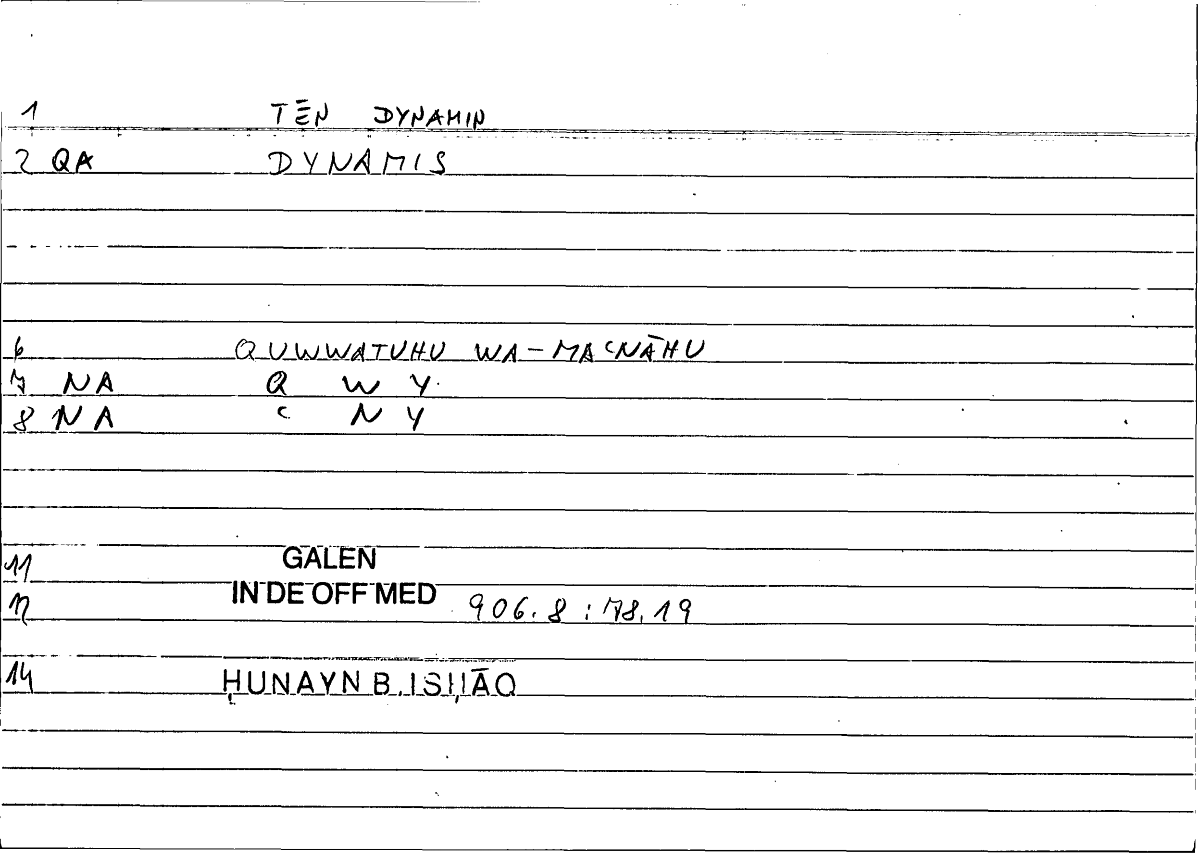 1 TĒN DYNAMIN
2 QA DYNAMIS
6 QUWWATUHU WA-MAʿNĀHU
7 NA Q W Y
8 NA ʿ N Y
11 GALEN
12 IN DE OFF MED 906.8 : 78.19
14 ḤUNAYN B. ISḤĀQ